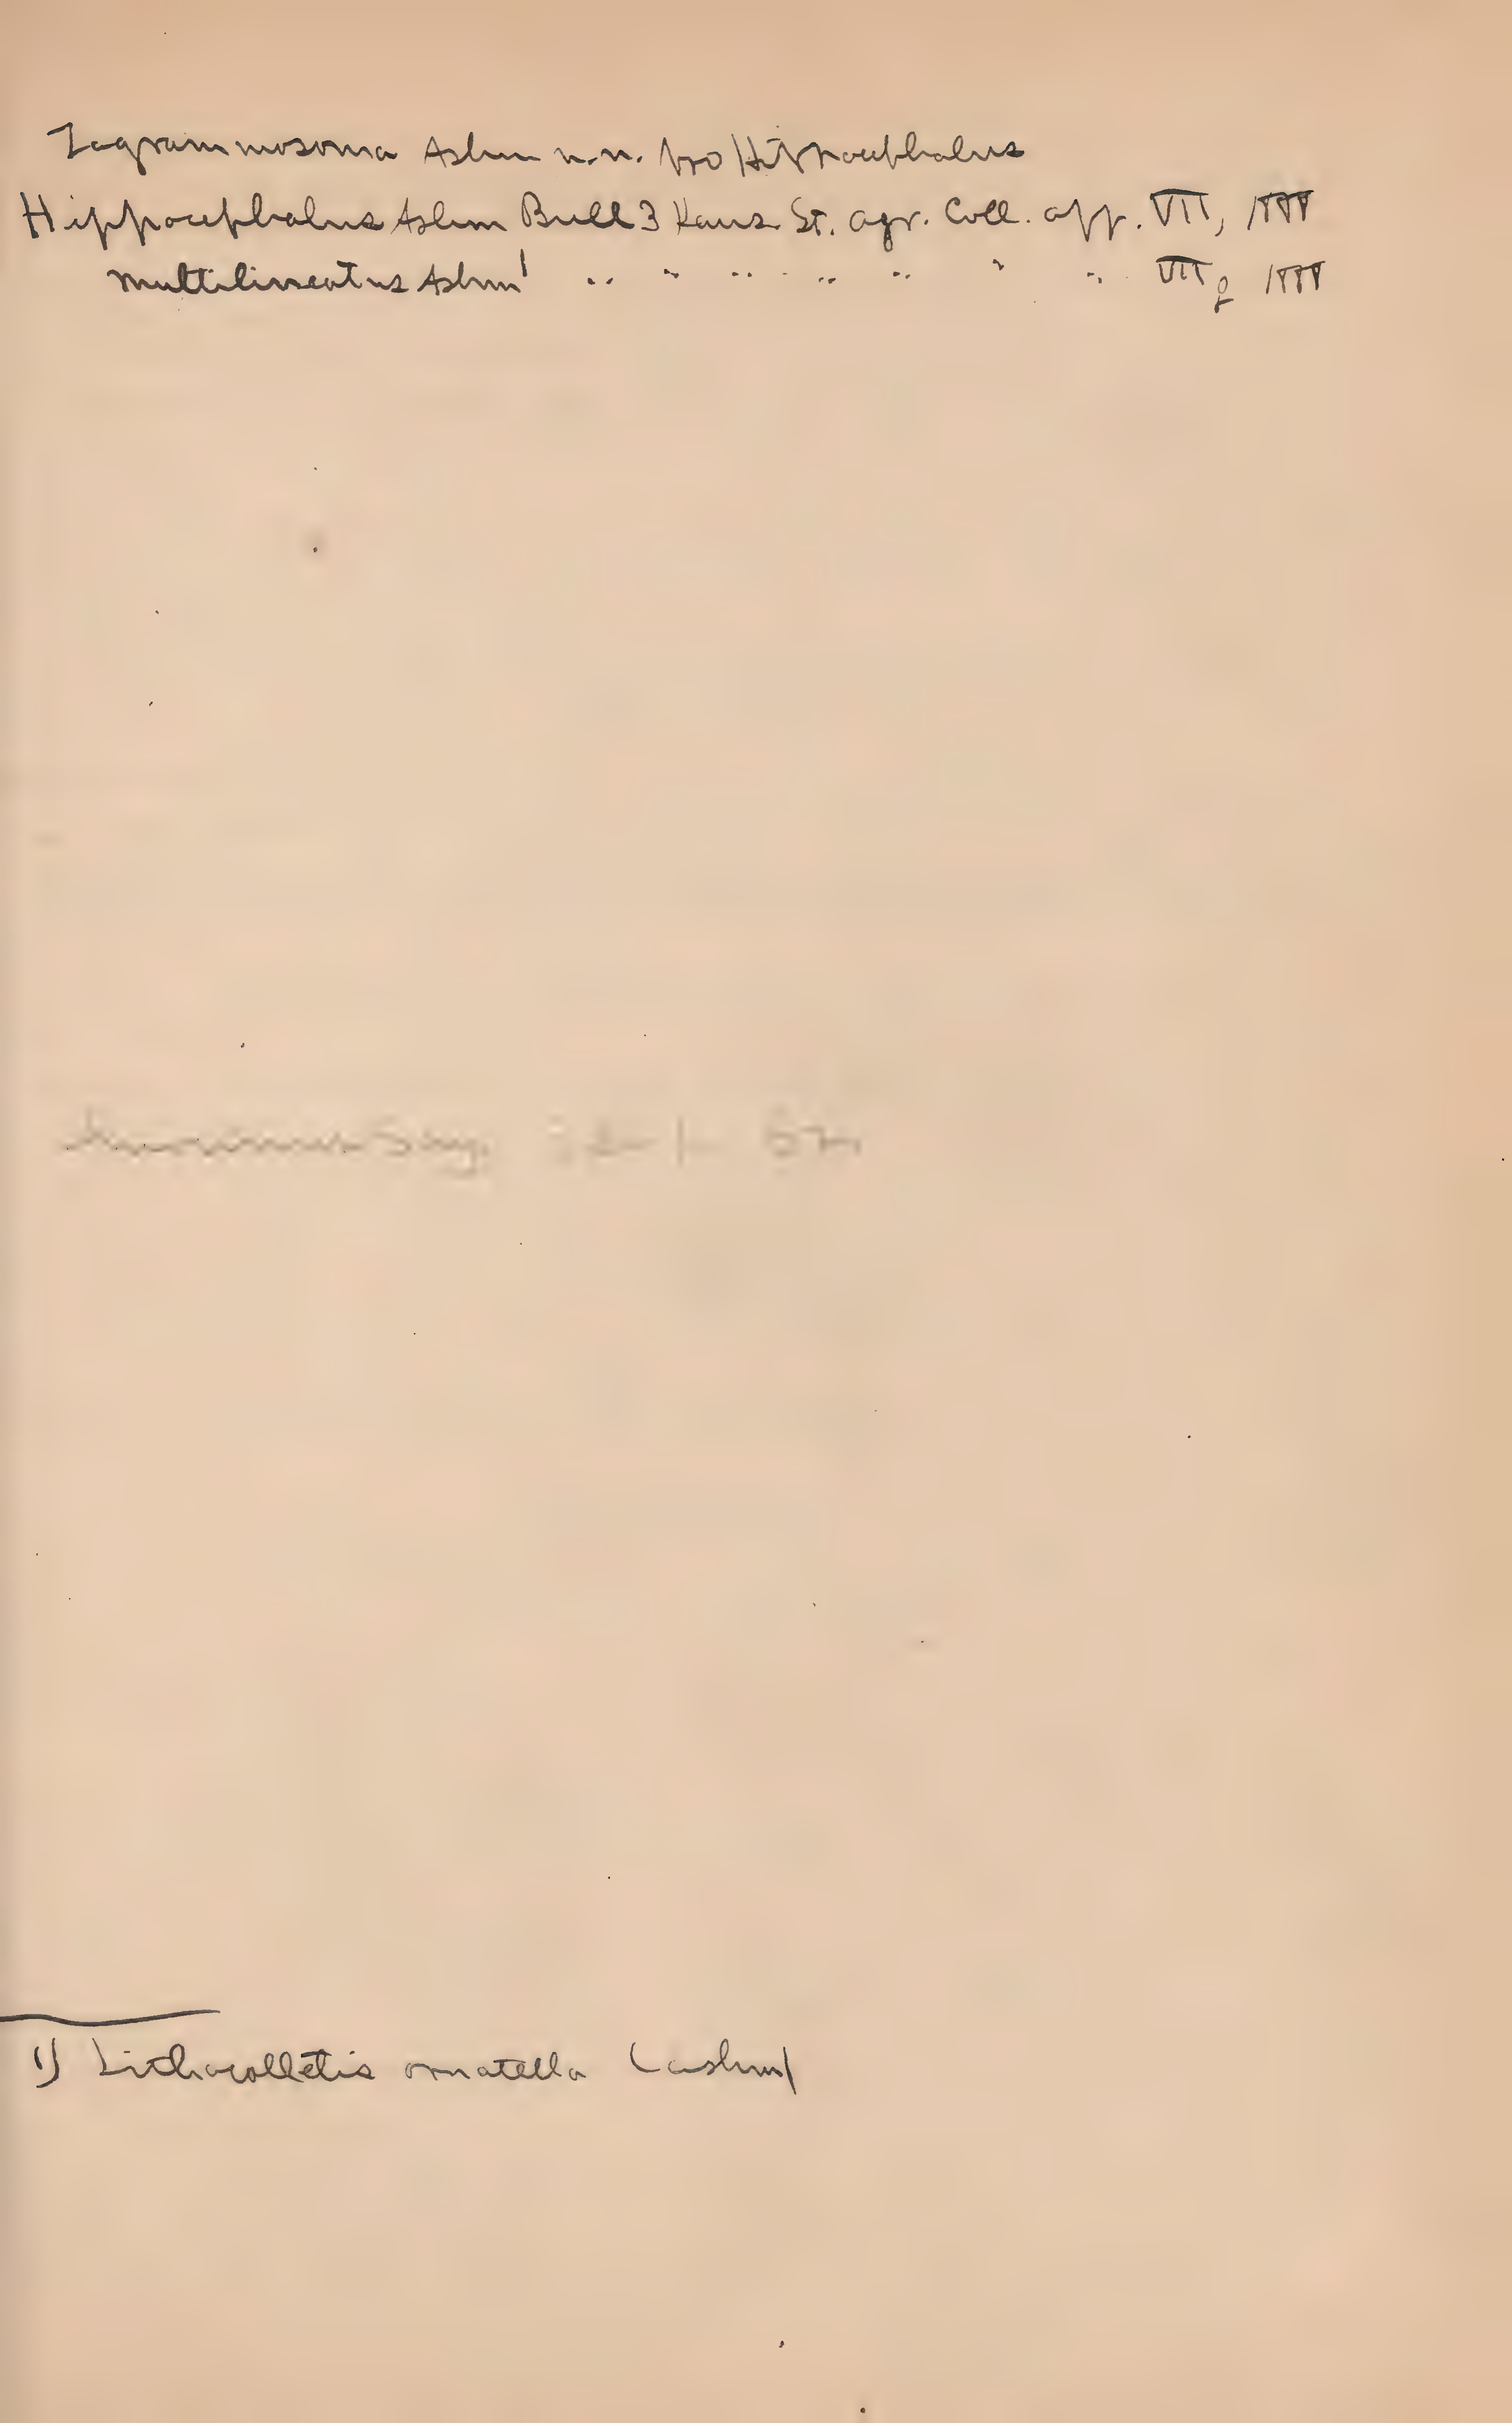 Zagrammosoma Ashm n.n. pro Hippocephalus
Hippocephalus Ashm Bull 3 Kans. St. agr. Coll. app. VII, 1888
multilineatus Ashm¹ " " " " " " " VII ♀ 1888
1) Lithocolletis ornatella (Ashm)